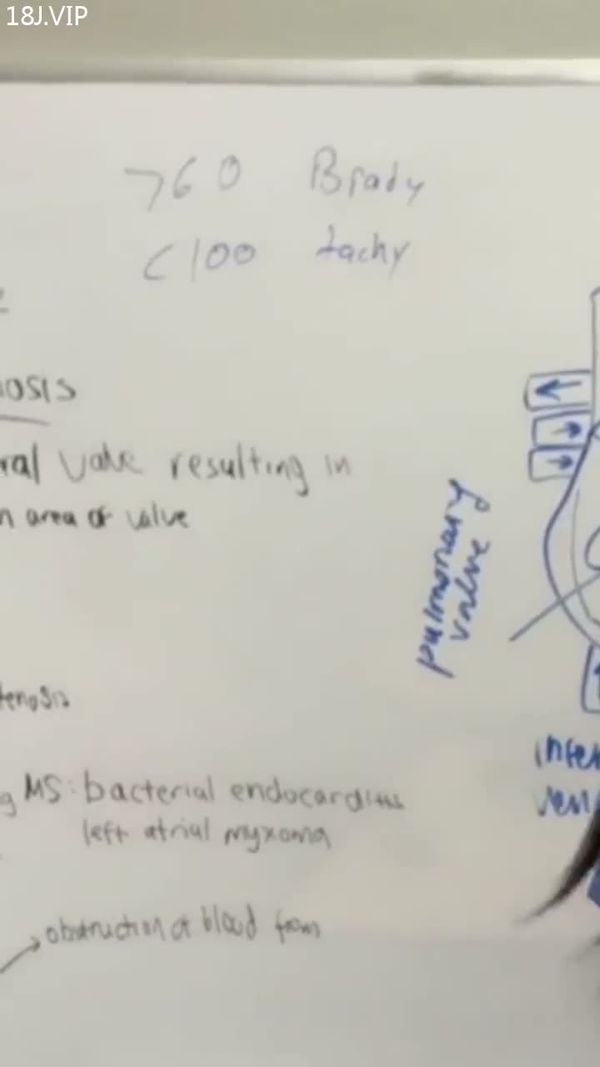 18J.VIP
>60 Brady
<100 tachy
osis
ral valve resulting in
n area of valve
pulmonary
valve
tenosis
g MS: bacterial endocarditis
left atrial myxoma
obstruction of blood from